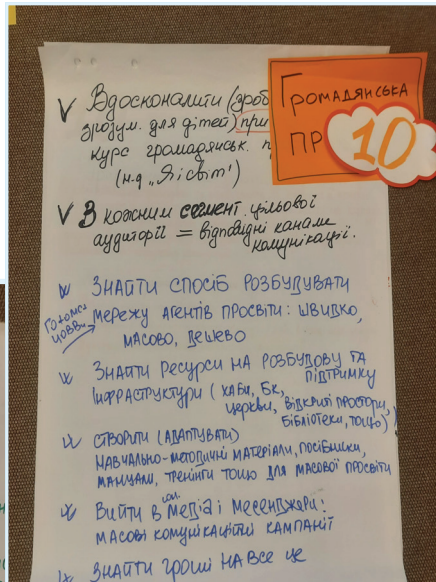 V Вдосконалити (зроб
зрозум. для дітей) при
курс громадянськ. п
(н-д „Я і світ")
ГРОМАДЯНСЬКА
ПР
10
V З кожним сегмент. цільової
аудиторії = відповідні канали
комунікації.
ЗНАЙТИ СПОСІБ РОЗБУДУВАТИ
МЕРЕЖУ АГЕНТІВ ПРОСВІТИ: ШВИДКО,
МАСОВО, ДЕШЕВО
ЗНАЙТИ РЕСУРСИ НА РОЗБУДОВУ ТА
ПІДТРИМКУ
ІНФРАСТРУКТУРИ (ХАБИ, БК,
ЦЕРКВИ, ВІДКРИТІ ПРОСТОРИ,
БІБЛІОТЕКИ, ТОЩО)
СТВОРИТИ (АДАПТУВАТИ)
НАВЧАЛЬНО-МЕТОДИЧНІ МАТЕРІАЛИ, ПОСІБНИКИ,
МАНУАЛИ, ТРЕНІНГИ ТОЩО ДЛЯ МАСОВОЇ ПРОСВІТИ
ВИЙТИ В МЕДІА І МЕСЕНДЖЕРИ:
МАСОВІ КОМУНІКАЦІЙНІ КАМПАНІЇ
ЗНАЙТИ ГРОШІ НА ВСЕ ЦЕ